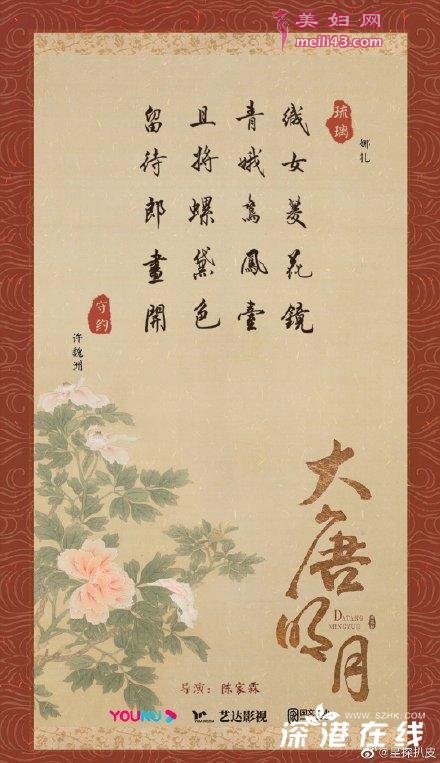 美妇网
meili43.com
琉璃
娜扎
織女菱花鏡
青娥鸞鳳臺
且將螺黛色
留待郎畫開
守约
许魏洲
大唐明月
DATANG
MINGYUE
导演：陈家霖
YOUKU
艺达影视
WWW.SZHK.COM
深港在线
@星探扒皮